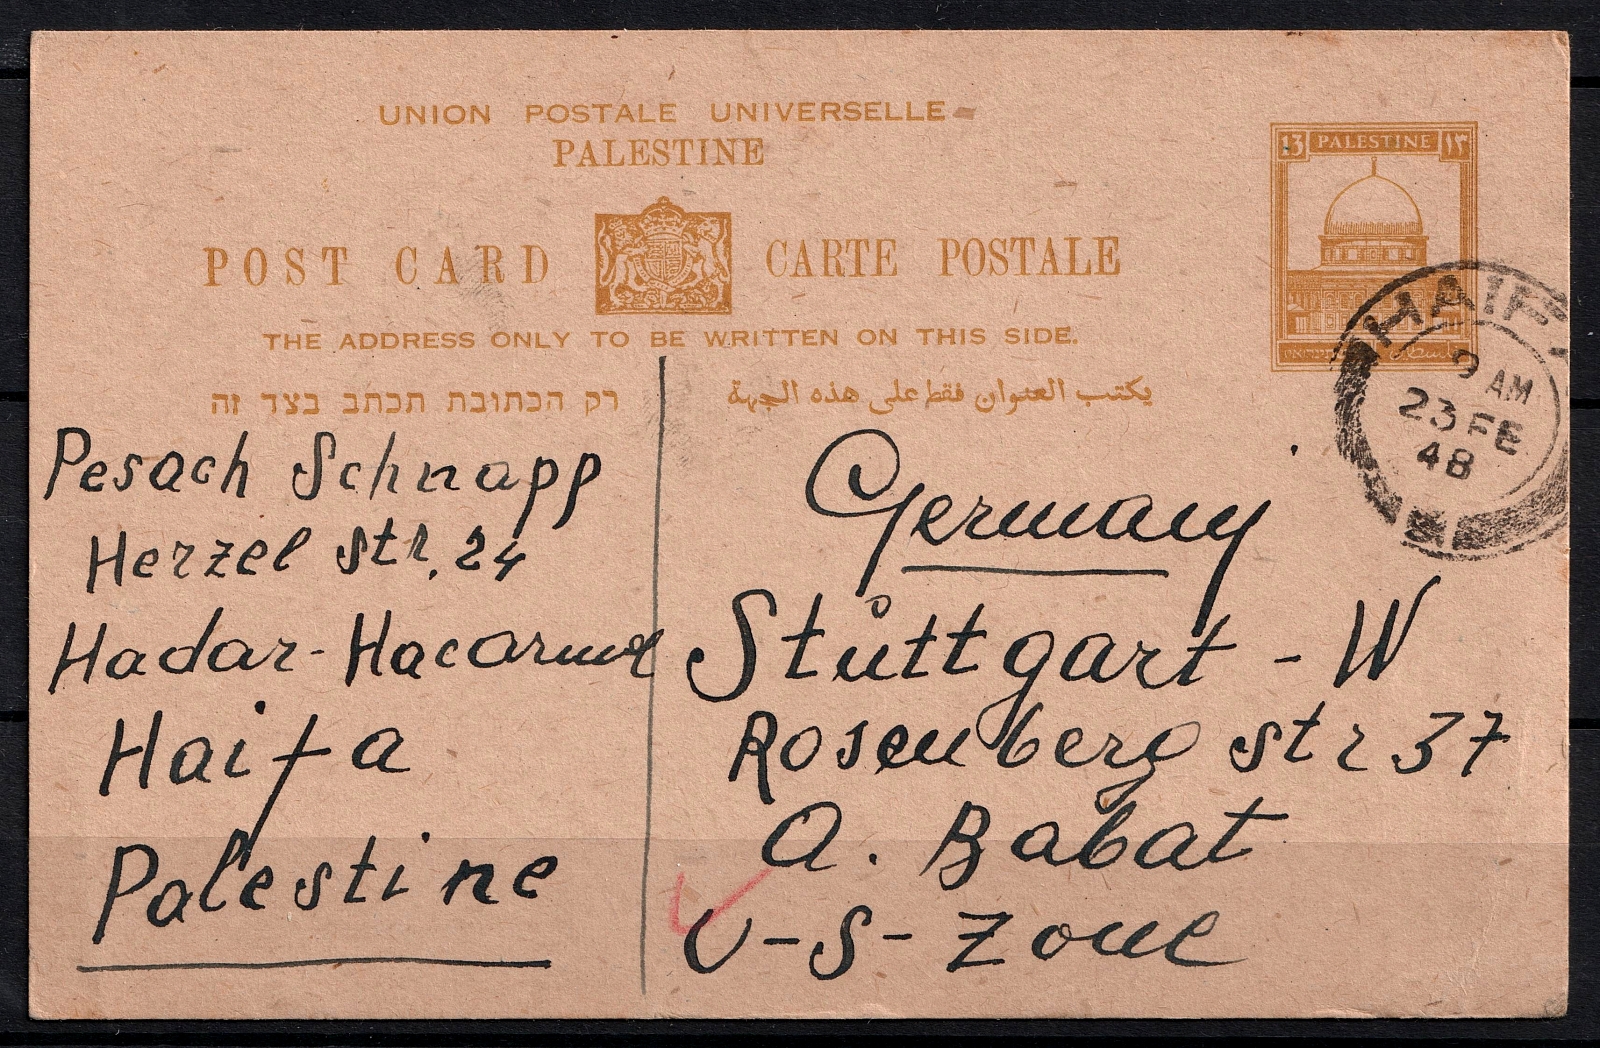 UNION POSTALE UNIVERSELLE
PALESTINE
13 PALESTINE ١٣
POST CARD CARTE POSTALE
THE ADDRESS ONLY TO BE WRITTEN ON THIS SIDE.
רק הכתובת תכתב בצד זה
يكتب العنوان فقط على هذه الجهة
فلسطين
HAIFA
9 AM
23 FE
48
Pesach Schnapp
Herzel str. 24
Hadar-Hacarmel
Haifa
Palestine
Germany
Stůttgart - W
Rosenberg str 37
A. Babat
U-S-Zone